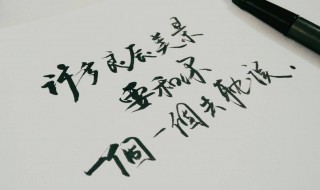 许多良辰美景
要和你
一個一個去耽误.